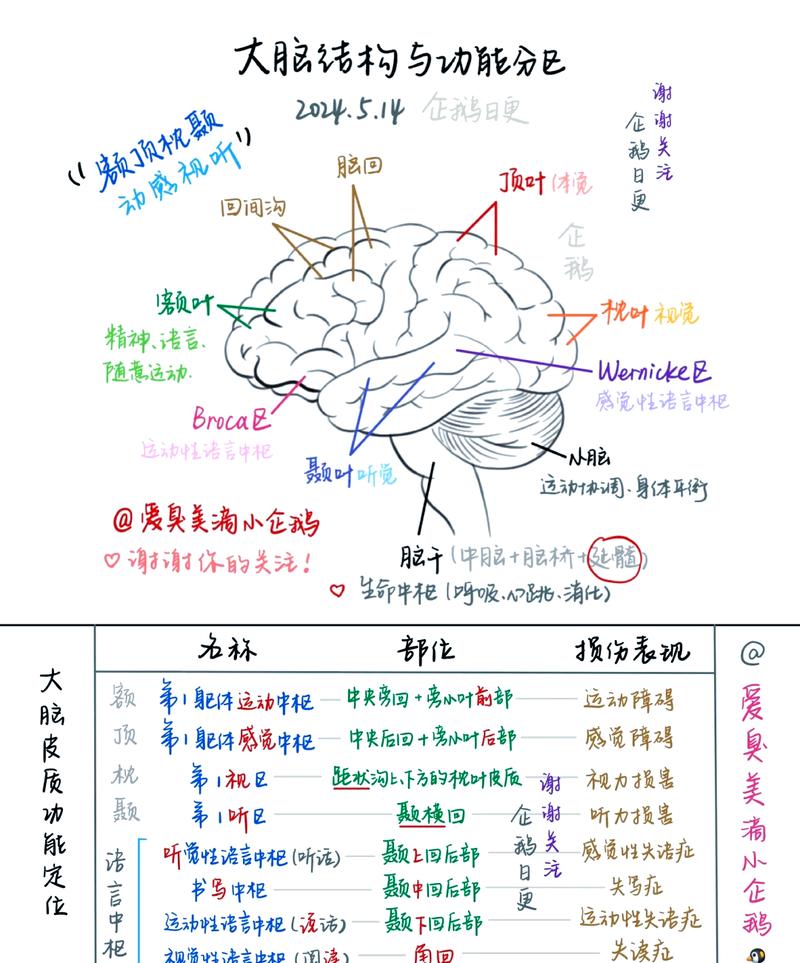 大脑结构与功能分区
2024.5.14 企鹅日更
谢谢关注
企鹅日更
“额顶枕颞
动感视听”
脑回
回间沟
顶叶 体觉
企鹅
额叶
精神、语言、
随意运动.
枕叶 视觉
Wernicke区
感觉性语言中枢
Broca区
运动性语言中枢
颞叶 听觉
小脑
运动协调、身体平衡
@爱臭美滴小企鹅
♡谢谢你的关注!
脑干(中脑+脑桥+延髓)
♡ 生命中枢(呼吸、心跳、消化)
大脑皮质功能定位
名称 部位 损伤表现
额 第1躯体运动中枢 中央旁回+旁小叶前部 运动障碍
顶 第1躯体感觉中枢 中央后回+旁小叶后部 感觉障碍
枕 第1视区 距状沟上、下方的枕叶皮质 视力损害
颞 第1听区 颞横回 听力损害
语言中枢
听觉性语言中枢(听话) 颞上回后部 感觉性失语症
书写中枢 颞中回后部 失写症
运动性语言中枢(说话) 颞下回后部 运动性失语症
视觉性语言中枢(阅读) 角回 失读症
谢谢关注
企鹅日更
@爱臭美滴小企鹅